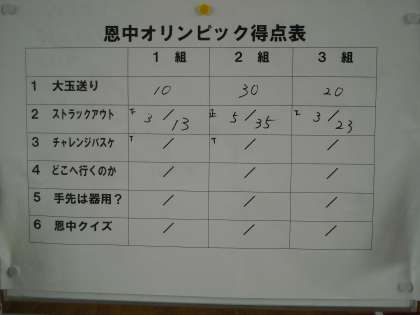 恩中オリンピック得点表
1組 2組 3組
1 大玉送り 10 30 20
2 ストラックアウト 3/13 正 5/35 3/23
3 チャレンジバスケ T / T / /
4 どこへ行くのか / / /
5 手先は器用? / / /
6 恩中クイズ / / /